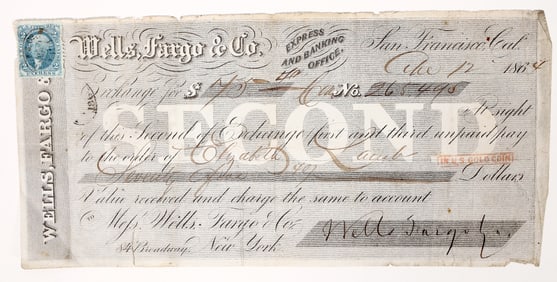 Wells, Fargo & Co.
EXPRESS AND BANKING OFFICE.
San Francisco, Cal.
Dec 12 1864
Exchange for $ 75 No. 265493
SECOND
At sight
of this Second of Exchange first and third unpaid pay
to the order of Elizabeth
IN U.S. GOLD COIN
Seventy five Dollars
Value received and charge the same to account
Mess. Wells, Fargo & Co.
84 Broadway, New York.
Wells Fargo & Co
WELLS, FARGO &
EXPRESS